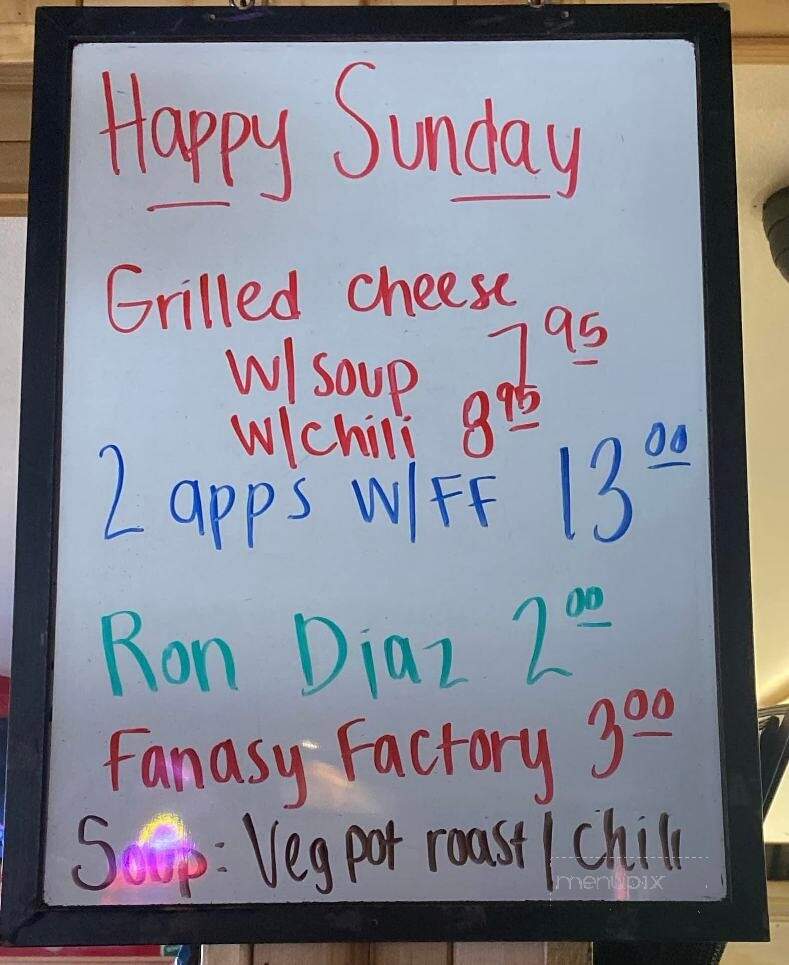 Happy Sunday
Grilled cheese
W/ soup 7 95
W/chili 8 95
2 apps W/FF 13 00
Ron Diaz 2 00
Fanasy Factory 3 00
Soup: Veg pot roast / Chili
menupix